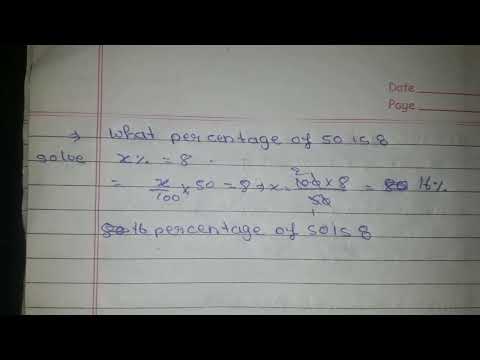 Date
Page
→ What percentage of 50 is 8
solve x% = 8
= x/100 × 50 = 8 → x = 100 × 8 / 50 = 16%
16 percentage of 50 is 8